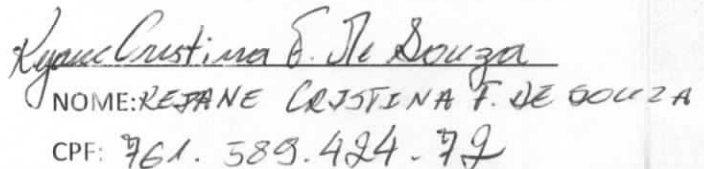 Rejane Cristina F. De Souza
NOME: REJANE CRISTINA F. DE SOUZA
CPF: 761.589.424-72